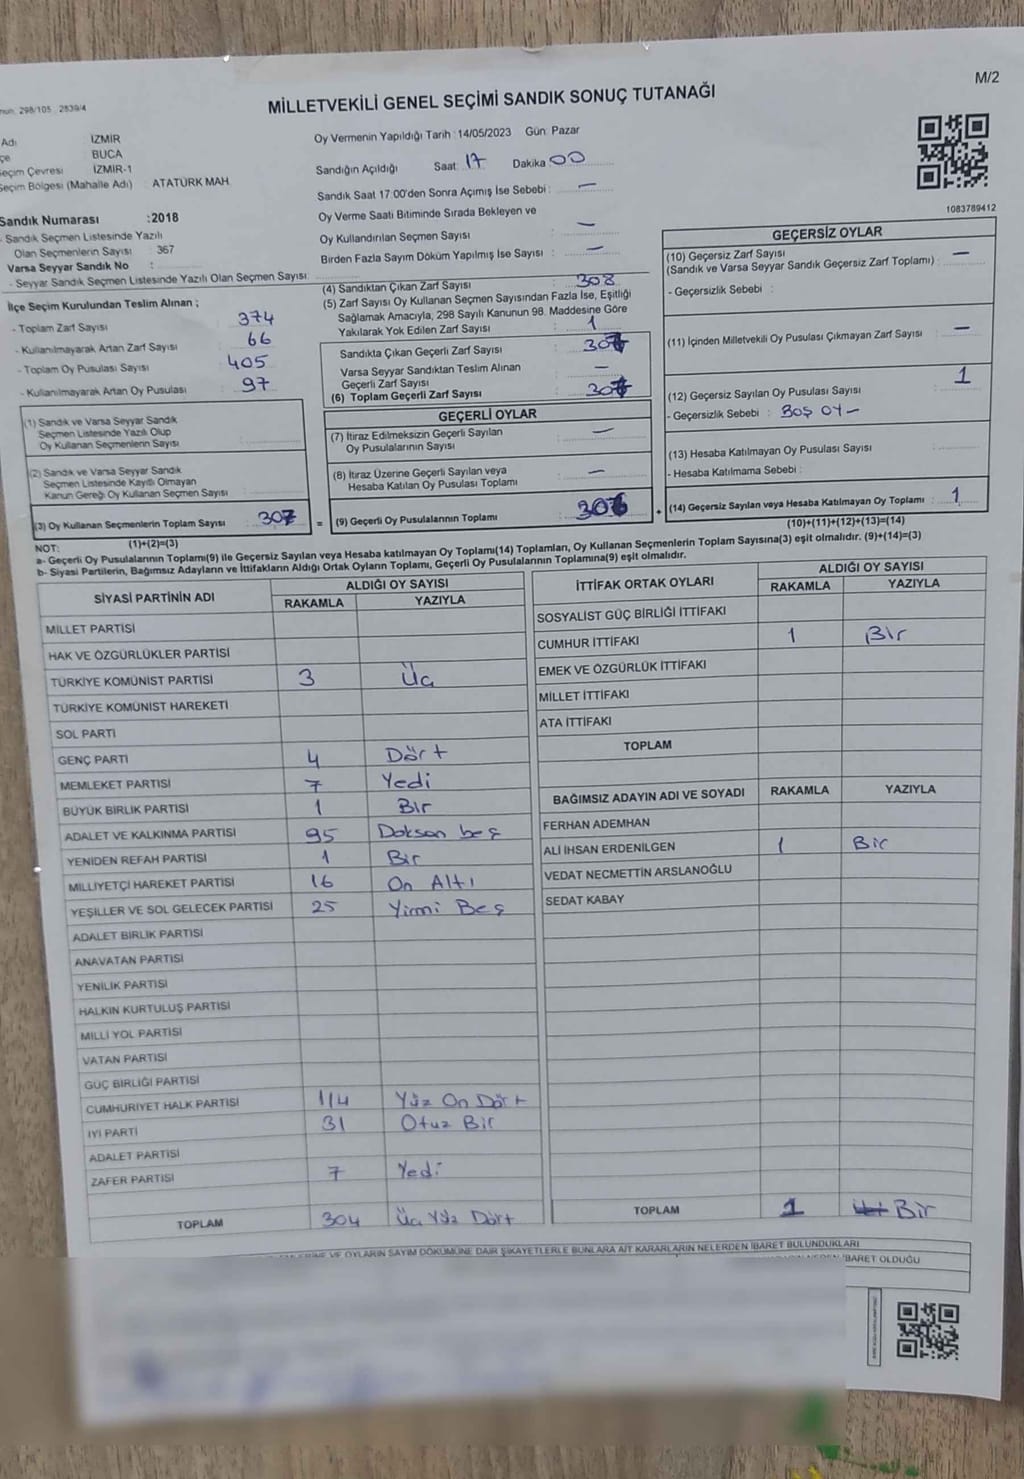 M/2
298/105 2839/4
MİLLETVEKİLİ GENEL SEÇİMİ SANDIK SONUÇ TUTANAĞI
Adı İZMİR
BUCA
Seçim Çevresi İZMİR-1
Seçim Bölgesi (Mahalle Adı) : ATATÜRK MAH.
Sandık Numarası :2018
- Sandık Seçmen Listesinde Yazılı
Olan Seçmenlerin Sayısı : 367
Varsa Seyyar Sandık No :
- Seyyar Sandık Seçmen Listesinde Yazılı Olan Seçmen Sayısı:
İlçe Seçim Kurulundan Teslim Alınan ;
- Toplam Zarf Sayısı : 374
- Kullanılmayarak Artan Zarf Sayısı : 66
- Toplam Oy Pusulası Sayısı : 405
- Kullanılmayarak Artan Oy Pusulası : 97
(1) Sandık ve Varsa Seyyar Sandık
Seçmen Listesinde Yazılı Olup
Oy Kullanan Seçmenlerin Sayısı :
(2) Sandık ve Varsa Seyyar Sandık
Seçmen Listesinde Kayıtlı Olmayan
Kanun Gereği Oy Kullanan Seçmen Sayısı :
(3) Oy Kullanan Seçmenlerin Toplam Sayısı : 307
(1)+(2)=(3)
Oy Vermenin Yapıldığı Tarih :14/05/2023 Gün: Pazar
Sandığın Açıldığı Saat: 17 Dakika: 00
Sandık Saat 17:00'den Sonra Açımış İse Sebebi : —
Oy Verme Saati Bitiminde Sırada Bekleyen ve
Oy Kullandırılan Seçmen Sayısı : —
Birden Fazla Sayım Döküm Yapılmış İse Sayısı : —
(4) Sandıktan Çıkan Zarf Sayısı : 308
(5) Zarf Sayısı Oy Kullanan Seçmen Sayısından Fazla İse, Eşitliği
Sağlamak Amacıyla, 298 Sayılı Kanunun 98. Maddesine Göre
Yakılarak Yok Edilen Zarf Sayısı : 1
Sandıkta Çıkan Geçerli Zarf Sayısı : 307
Varsa Seyyar Sandıktan Teslim Alınan
Geçerli Zarf Sayısı : —
(6) Toplam Geçerli Zarf Sayısı : 307
GEÇERLİ OYLAR
(7) İtiraz Edilmeksizin Geçerli Sayılan
Oy Pusulalarının Sayısı : —
(8) İtiraz Üzerine Geçerli Sayılan veya
Hesaba Katılan Oy Pusulası Toplamı : —
= (9) Geçerli Oy Pusulalarının Toplamı : 306 +
1083789412
GEÇERSİZ OYLAR
(10) Geçersiz Zarf Sayısı
(Sandık ve Varsa Seyyar Sandık Geçersiz Zarf Toplamı) : —
- Geçersizlik Sebebi :
(11) İçinden Milletvekili Oy Pusulası Çıkmayan Zarf Sayısı : —
(12) Geçersiz Sayılan Oy Pusulası Sayısı : 1
- Geçersizlik Sebebi : BOŞ OY —
(13) Hesaba Katılmayan Oy Pusulası Sayısı :
- Hesaba Katılmama Sebebi :
(14) Geçersiz Sayılan veya Hesaba Katılmayan Oy Toplamı : 1
(10)+(11)+(12)+(13)=(14)
NOT:
a- Geçerli Oy Pusulalarının Toplamı(9) ile Geçersiz Sayılan veya Hesaba katılmayan Oy Toplamı(14) Toplamları, Oy Kullanan Seçmenlerin Toplam Sayısına(3) eşit olmalıdır. (9)+(14)=(3)
b- Siyasi Partilerin, Bağımsız Adayların ve İttifakların Aldığı Ortak Oyların Toplamı, Geçerli Oy Pusulalarının Toplamına(9) eşit olmalıdır.
SİYASİ PARTİNİN ADI ALDIĞI OY SAYISI
RAKAMLA YAZIYLA
MİLLET PARTİSİ
HAK VE ÖZGÜRLÜKLER PARTİSİ
TÜRKİYE KOMÜNİST PARTİSİ 3 Üç
TÜRKİYE KOMÜNİST HAREKETİ
SOL PARTİ
GENÇ PARTİ 4 Dört
MEMLEKET PARTİSİ 7 Yedi
BÜYÜK BİRLİK PARTİSİ 1 Bir
ADALET VE KALKINMA PARTİSİ 95 Doksan beş
YENİDEN REFAH PARTİSİ 1 Bir
MİLLİYETÇİ HAREKET PARTİSİ 16 On Altı
YEŞİLLER VE SOL GELECEK PARTİSİ 25 Yirmi Beş
ADALET BİRLİK PARTİSİ
ANAVATAN PARTİSİ
YENİLİK PARTİSİ
HALKIN KURTULUŞ PARTİSİ
MİLLİ YOL PARTİSİ
VATAN PARTİSİ
GÜÇ BİRLİĞİ PARTİSİ
CUMHURİYET HALK PARTİSİ 114 Yüz On Dört
İYİ PARTİ 31 Otuz Bir
ADALET PARTİSİ
ZAFER PARTİSİ 7 Yedi
TOPLAM 304 Üç Yüz Dört
İTTİFAK ORTAK OYLARI ALDIĞI OY SAYISI
RAKAMLA YAZIYLA
SOSYALİST GÜÇ BİRLİĞİ İTTİFAKI
CUMHUR İTTİFAKI 1 Bir
EMEK VE ÖZGÜRLÜK İTTİFAKI
MİLLET İTTİFAKI
ATA İTTİFAKI
TOPLAM
BAĞIMSIZ ADAYIN ADI VE SOYADI RAKAMLA YAZIYLA
FERHAN ADEMHAN
ALİ İHSAN ERDENİLGEN 1 Bir
VEDAT NECMETTİN ARSLANOĞLU
SEDAT KABAY
TOPLAM 1 Bir
VE OYLARIN SAYIM DÖKÜMÜNE DAİR ŞİKAYETLERLE BUNLARA AİT KARARLARIN NELERDEN İBARET BULUNDUKLARI
İBARET OLDUĞU